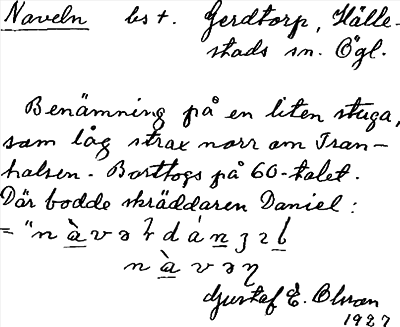 Naveln bst. Gerdtorp, Hälle-
stads sn. Ögl.
Benämning på en liten stuga,
som låg strax norr om Tran-
halsen. Borttogs på 60-talet.
Där bodde skräddaren Daniel:
= "nàvəɫ dánɜɪl
nàvəŋ
Gustaf E. Olsson
1927